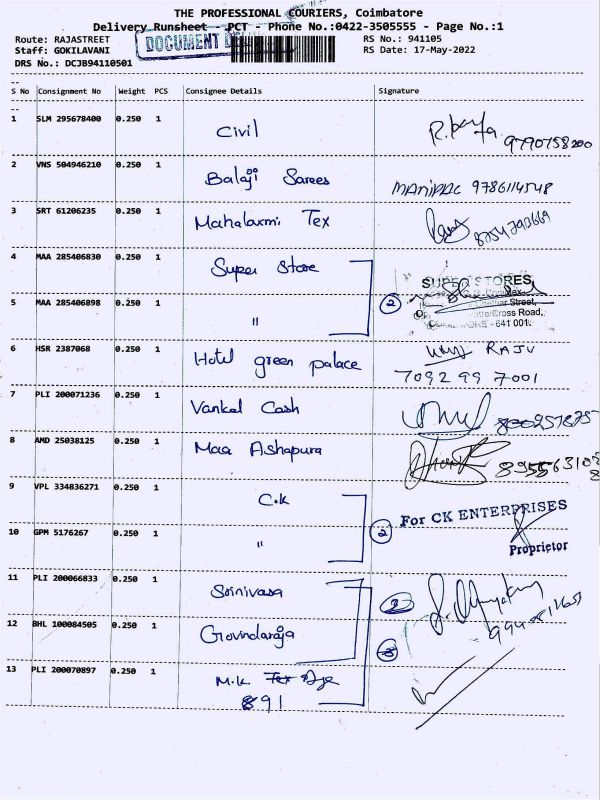 THE PROFESSIONAL COURIERS, Coimbatore
Delivery Runsheet - PCT - Phone No.:0422-3505555 - Page No.:1
Route: RAJASTREET RS No.: 941105
Staff: GOKILAVANI DOCUMENT RS Date: 17-May-2022
DRS No.: DCJB94110501
S No Consignment No Weight PCS Consignee Details Signature
1 SLM 295678400 0.250 1 Civil 9790758200
2 VNS 504946210 0.250 1 Balaji Sarees 9786114548
3 SRT 61206235 0.250 1 Mahalaxmi Tex
4 MAA 285406830 0.250 1 Super Store
SUPER STORES
5 MAA 285406898 0.250 1 " 2
Street,
Cross Road,
- 641 001.
6 HSR 2387068 0.250 1 Hotel green palace RAJU
7092 99 7001
7 PLI 200071236 0.250 1 Vankal Cash
8 AMD 25038125 0.250 1 Maa Ashapura
9 VPL 334836271 0.250 1 C.K
10 GPM 5176267 0.250 1 " 2 For CK ENTERPRISES
Proprietor
11 PLI 200066833 0.250 1 Srinivasa
12 BHL 100084505 0.250 1 Govindaraja
13 PLI 200070897 0.250 1 M.K
891